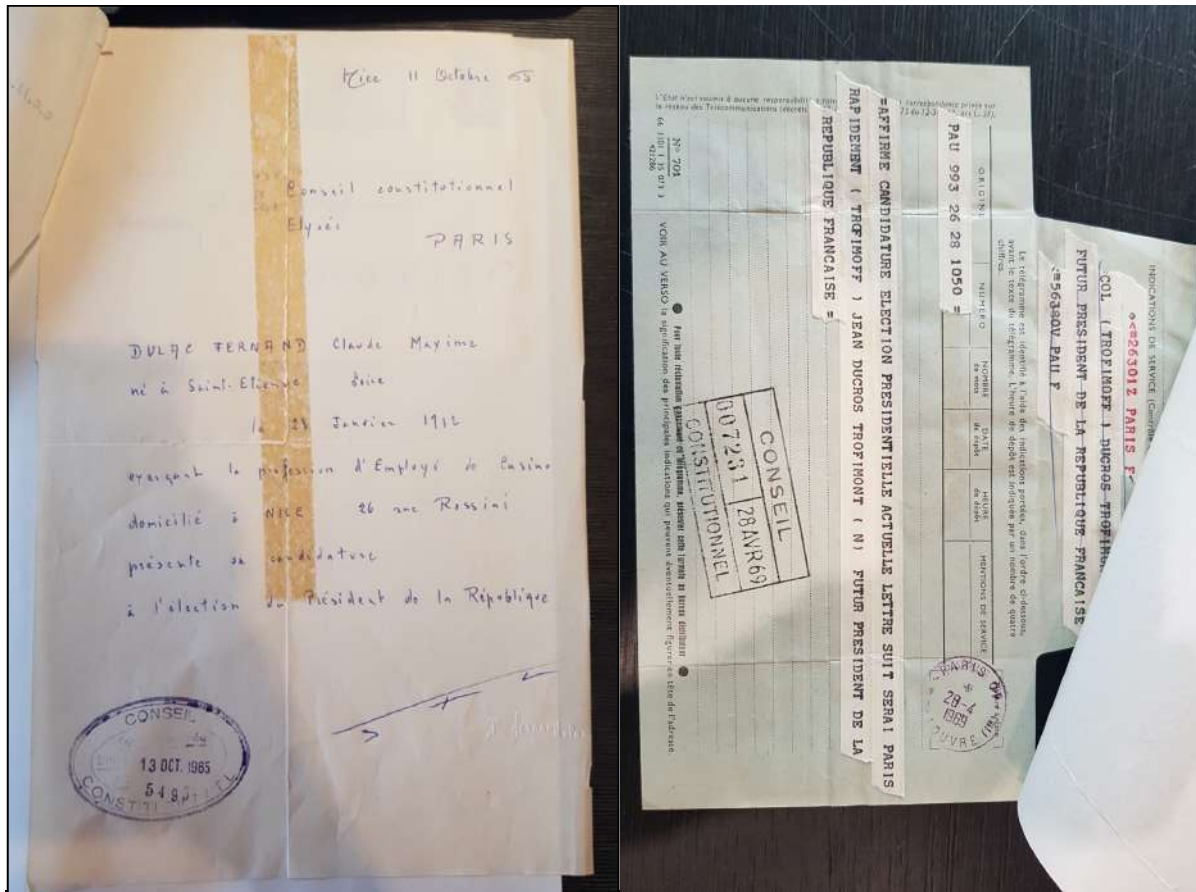 Nice 11 Octobre 65
Conseil constitutionnel
Elysée
PARIS
DULAC FERNAND Claude Maxime
né à Saint-Etienne Loire
le 28 Janvier 1912
exerçant la profession d'Employé de Casino
domicilié à NICE 26 rue Rossini
présente sa candidature
à l'élection du Président de la République
CONSEIL
13 OCT. 1965
CONSTITUTIONNEL
INDICATIONS DE SERVICE
=263012 PARIS F
COL ( TROFIMOFF ) DUCROS
FUTUR PRESIDENT DE LA REPUBLIQUE FRANCAISE
=56380V PAU F
Le télégramme est identifié à l'aide des indications portées, dans l'ordre ci-dessous,
avant le texte du télégramme. L'heure de dépôt est indiquée par un nombre de quatre
chiffres.
ORIGINE NUMÉRO NOMBRE de mots DATE de dépôt HEURE de dépôt MENTIONS DE SERVICE
PAU 993 26 28 1050 =
PARIS
28-4
1969
LOUVRE
=AFFIRME CANDIDATURE ELECTION PRESIDENTIELLE ACTUELLE LETTRE SUIT SERAI PARIS
RAPIDEMENT ( TROFIMOFF ) JEAN DUCROS TROFIMONT ( N) FUTUR PRESIDENT DE LA
REPUBLIQUE FRANCAISE =
CONSEIL
007231 28 AVR 69
CONSTITUTIONNEL
L'État n'est soumis à aucune responsabilité correspondance privée sur
le réseau des Télécommunications
N° 701
VOIR AU VERSO la signification des principales indications qui peuvent éventuellement figurer en tête de l'adresse.